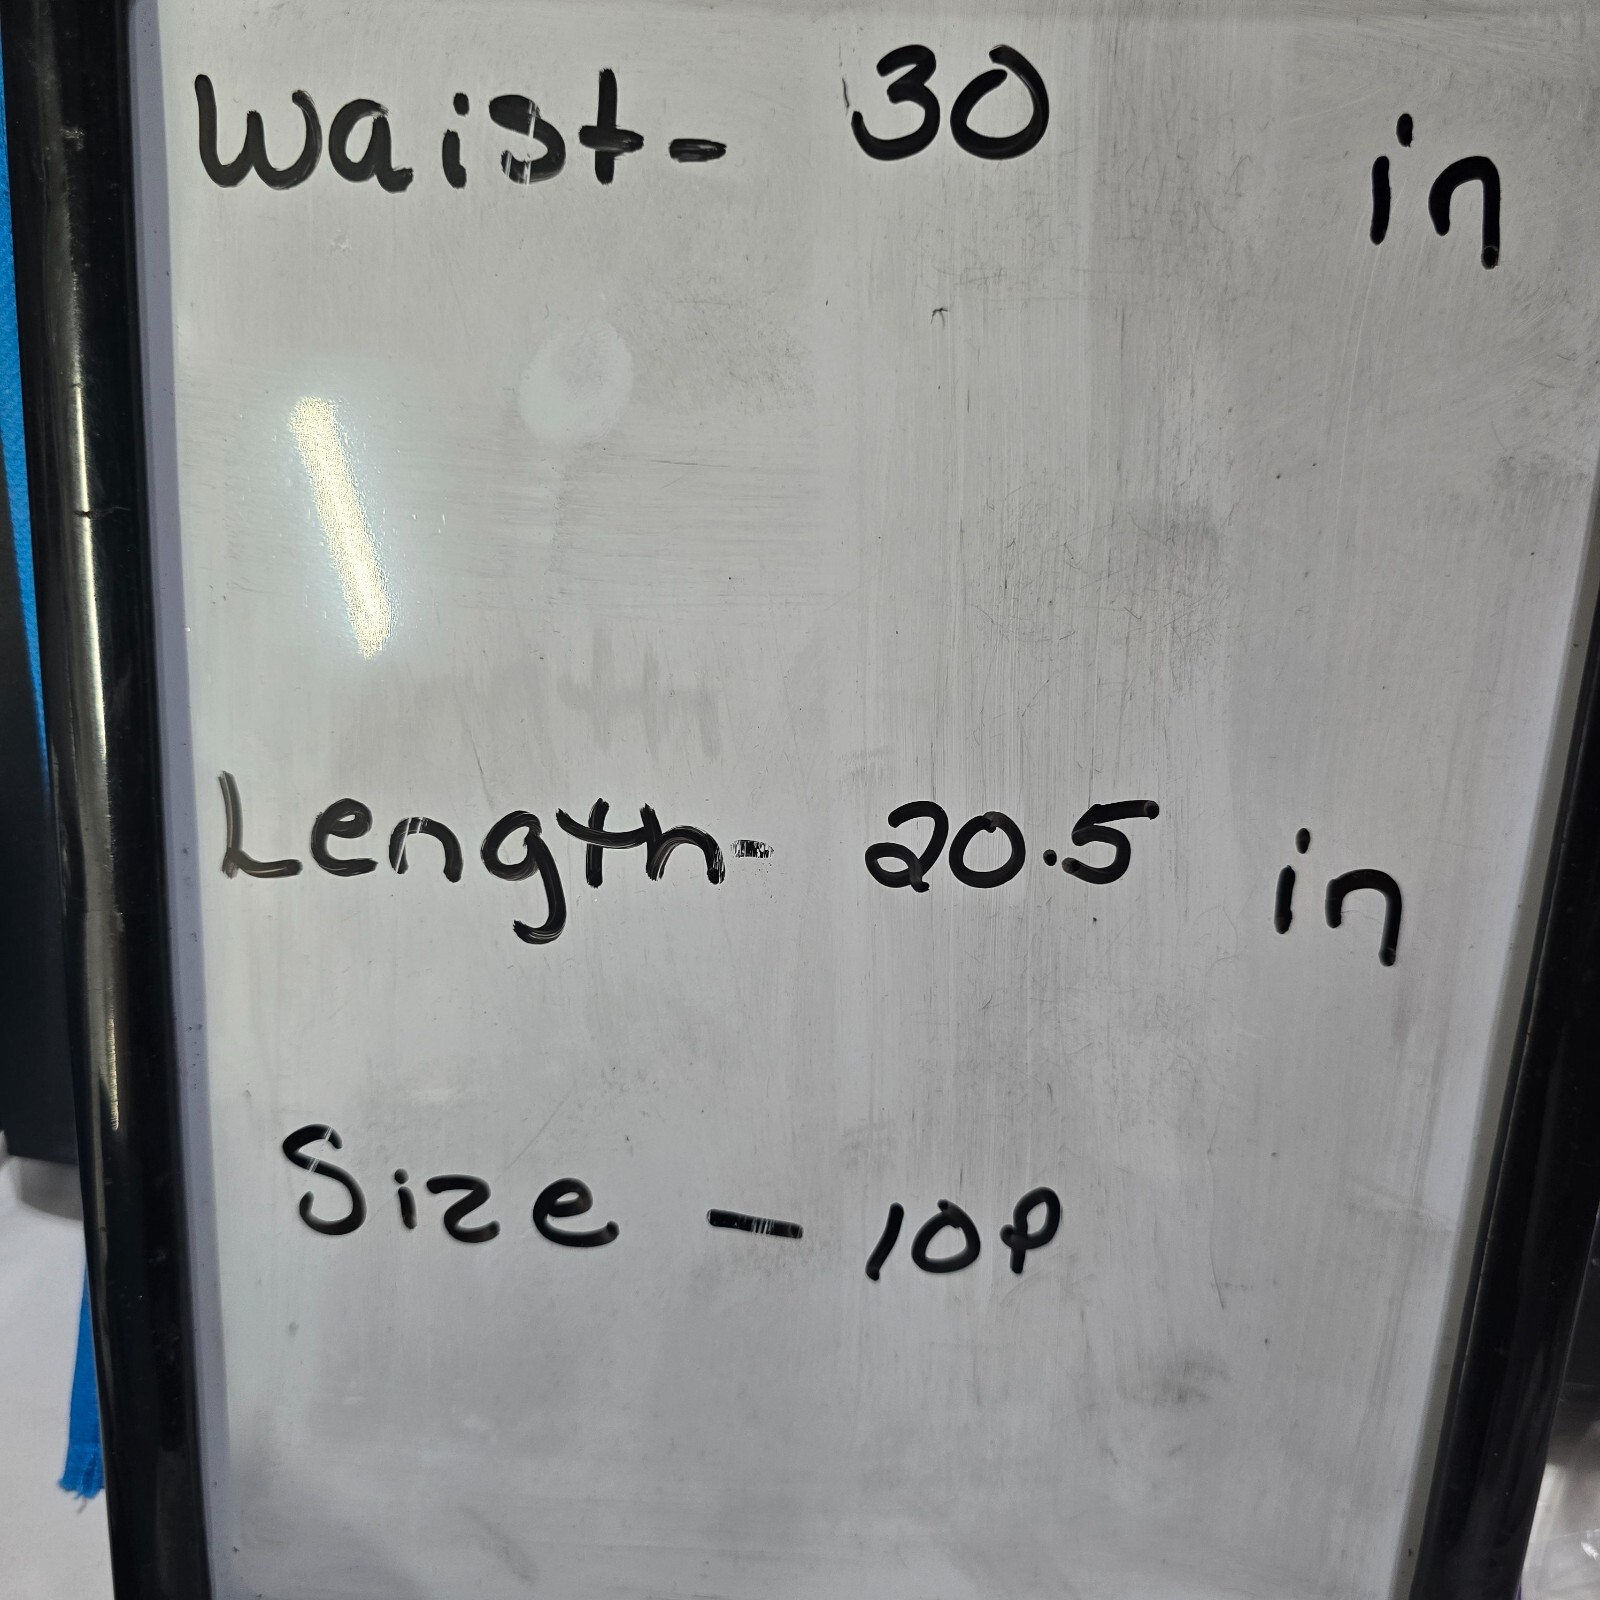 Waist- 30 in
Length- 20.5 in
Size - 10P